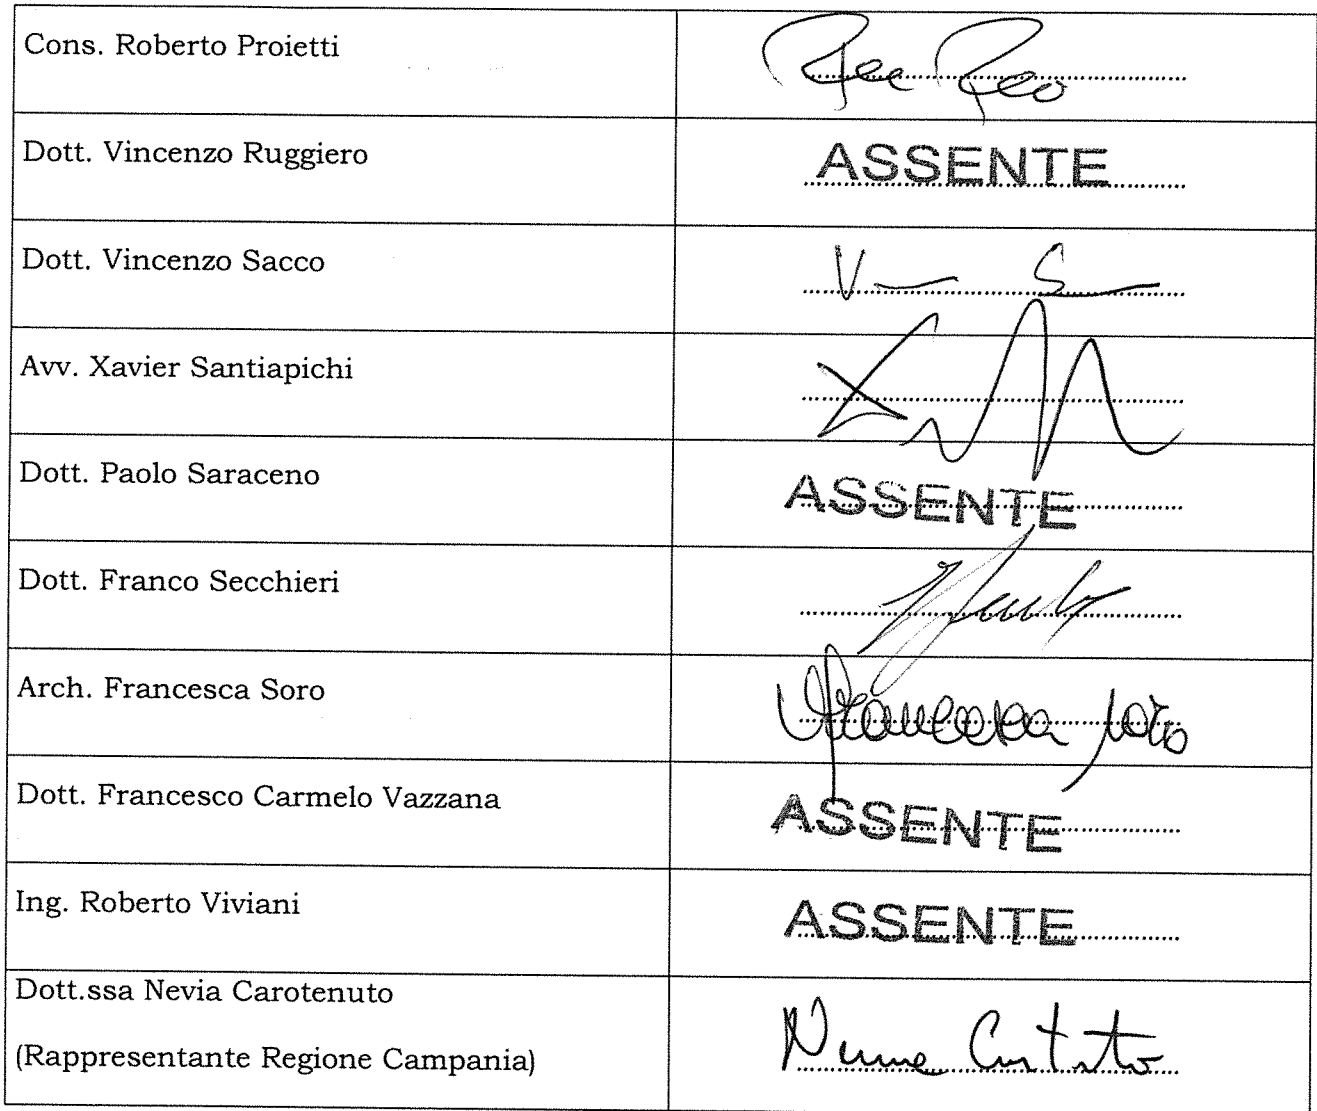 Cons. Roberto Proietti
Dott. Vincenzo Ruggiero ASSENTE
Dott. Vincenzo Sacco V S
Avv. Xavier Santiapichi
Dott. Paolo Saraceno ASSENTE
Dott. Franco Secchieri
Arch. Francesca Soro Francesca Soro
Dott. Francesco Carmelo Vazzana ASSENTE
Ing. Roberto Viviani ASSENTE
Dott.ssa Nevia Carotenuto
(Rappresentante Regione Campania)